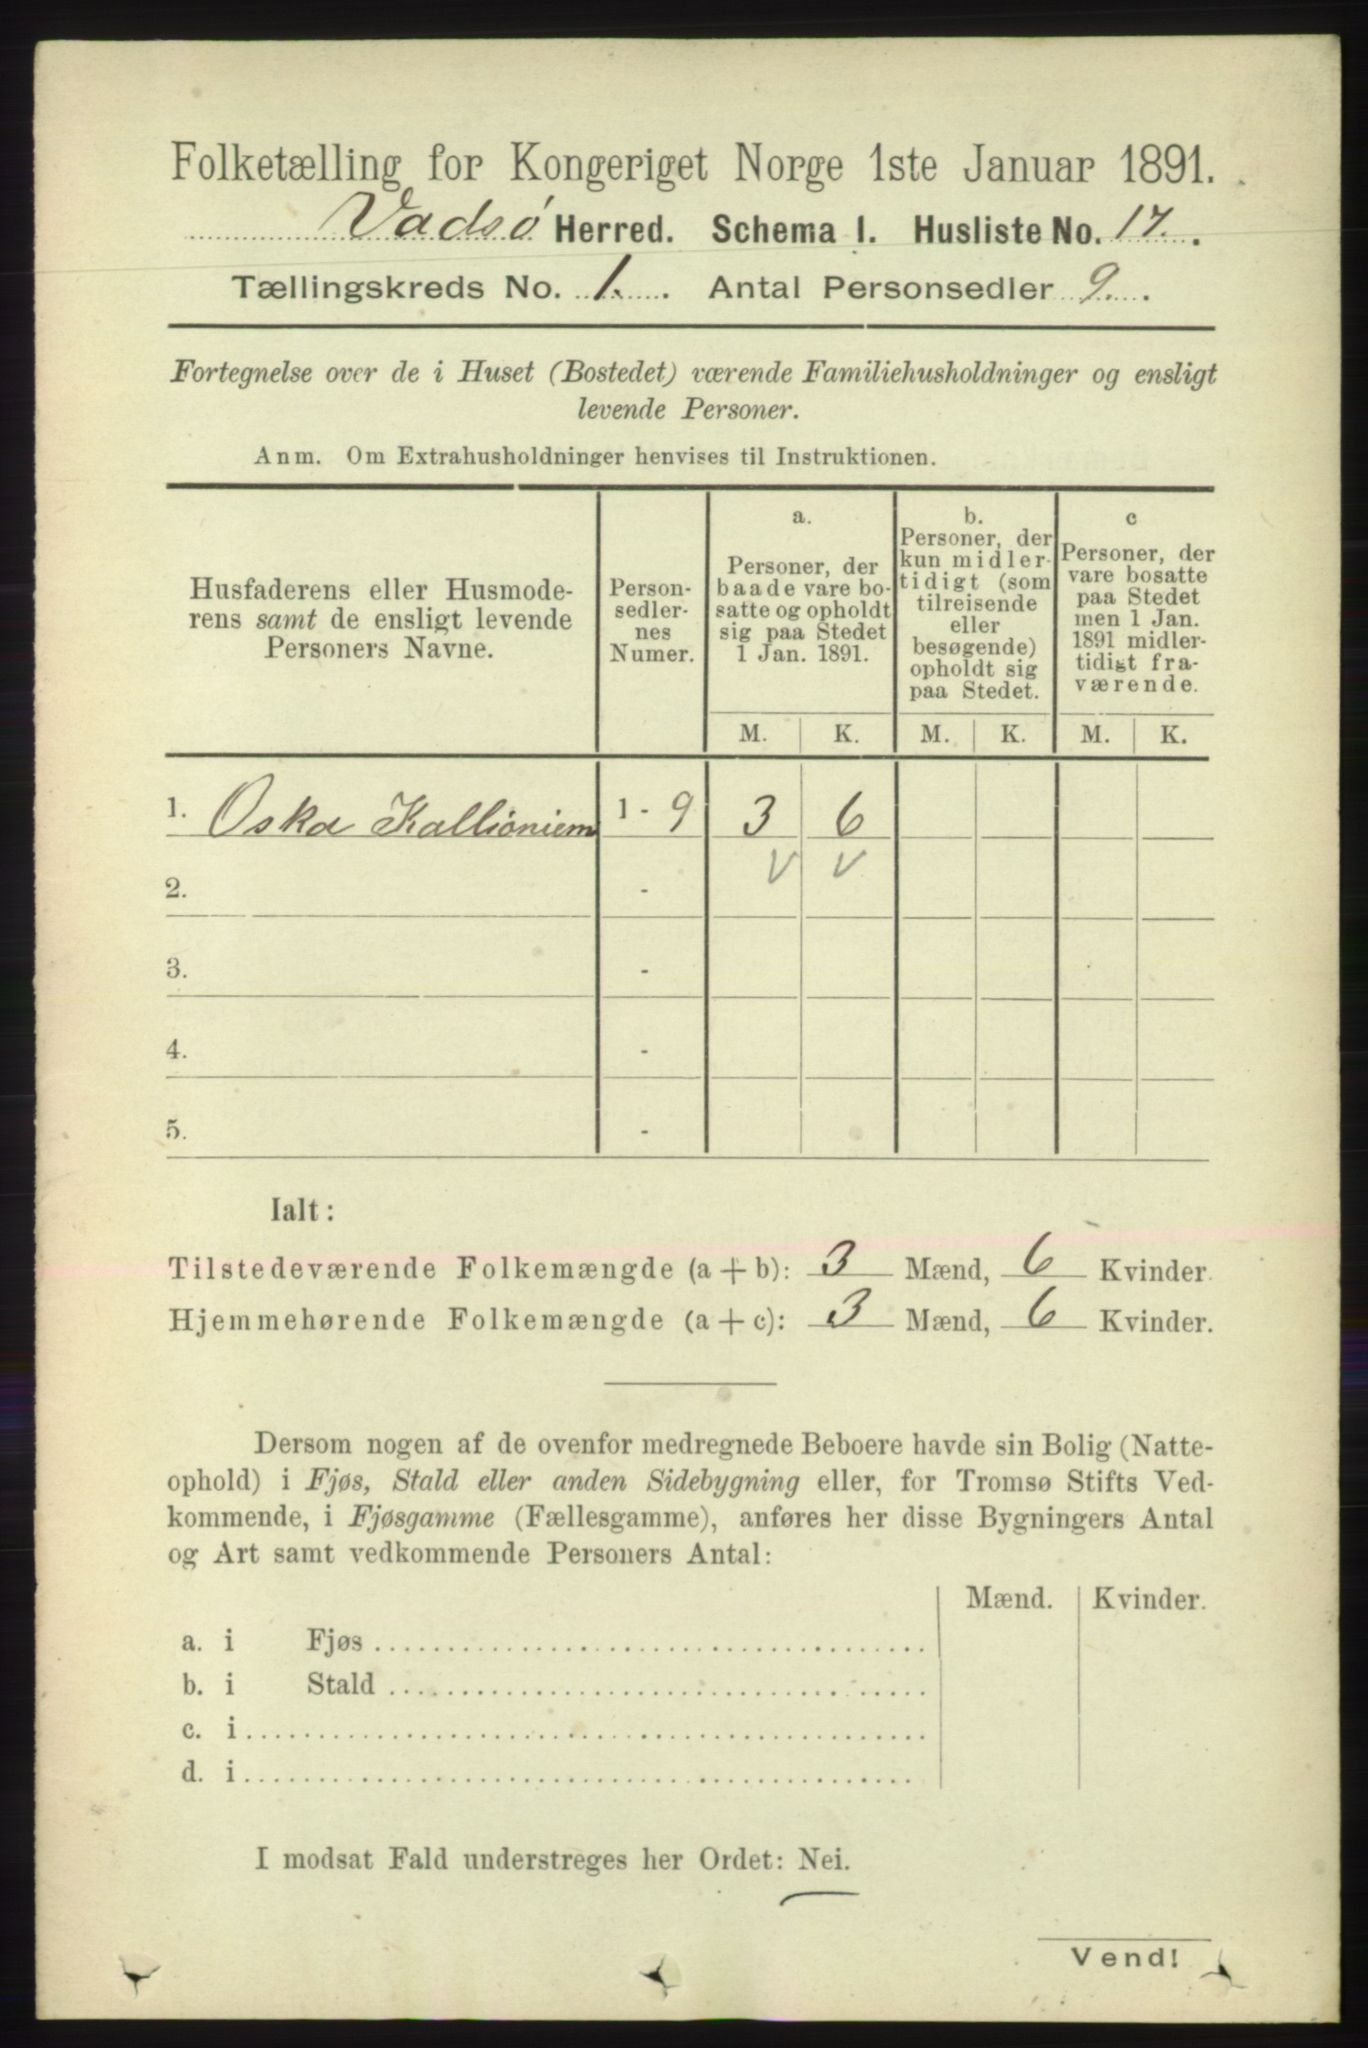 Folketælling for Kongeriget Norge 1ste Januar 1891.
Vadsø Herred. Schema I. Husliste No. 17.
Tællingskreds No. 1. Antal Personsedler 9.
Fortegnelse over de i Huset (Bostedet) værende Familiehusholdninger og ensligt
levende Personer.
Anm. Om Extrahusholdninger henvises til Instruktionen.
Husfaderens eller Husmode-
rens samt de ensligt levende
Personers Navne.
Person-
sedler-
nes
Numer.
a.
Personer, der
baade vare bo-
satte og opholdt
sig paa Stedet
1 Jan. 1891.
b.
Personer, der
kun midler-
tidigt (som
tilreisende
eller
besøgende)
opholdt sig
paa Stedet.
c
Personer, der
vare bosatte
paa Stedet
men 1 Jan.
1891 midler-
tidigt fra-
værende.
M. K. M. K. M. K.
1. Oska Kallioniem 1 - 9 3 6
2. - V V
3. -
4. -
5. -
Ialt:
Tilstedeværende Folkemængde (a + b): 3 Mænd, 6 Kvinder.
Hjemmehørende Folkemængde (a + c): 3 Mænd, 6 Kvinder.
Dersom nogen af de ovenfor medregnede Beboere havde sin Bolig (Natte-
ophold) i Fjøs, Stald eller anden Sidebygning eller, for Tromsø Stifts Ved-
kommende, i Fjøsgamme (Fællesgamme), anføres her disse Bygningers Antal
og Art samt vedkommende Personers Antal:
Mænd. Kvinder.
a. i Fjøs
b. i Stald
c. i
d. i
I modsat Fald understreges her Ordet: Nei.
Vend!